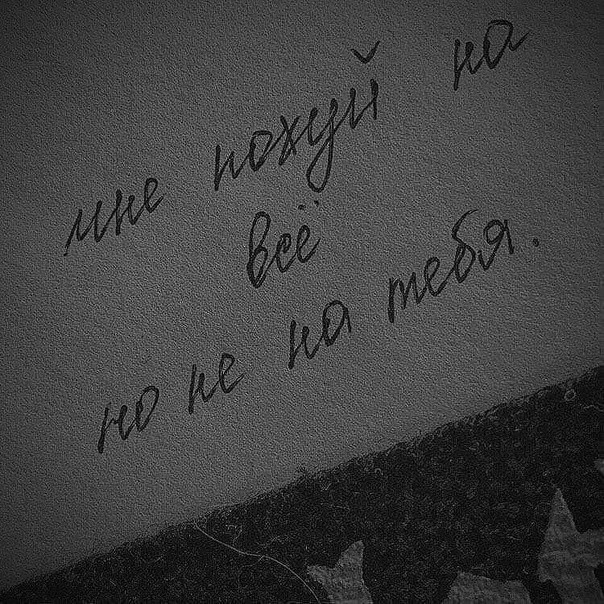 мне похуй на
всё
но не на тебя.